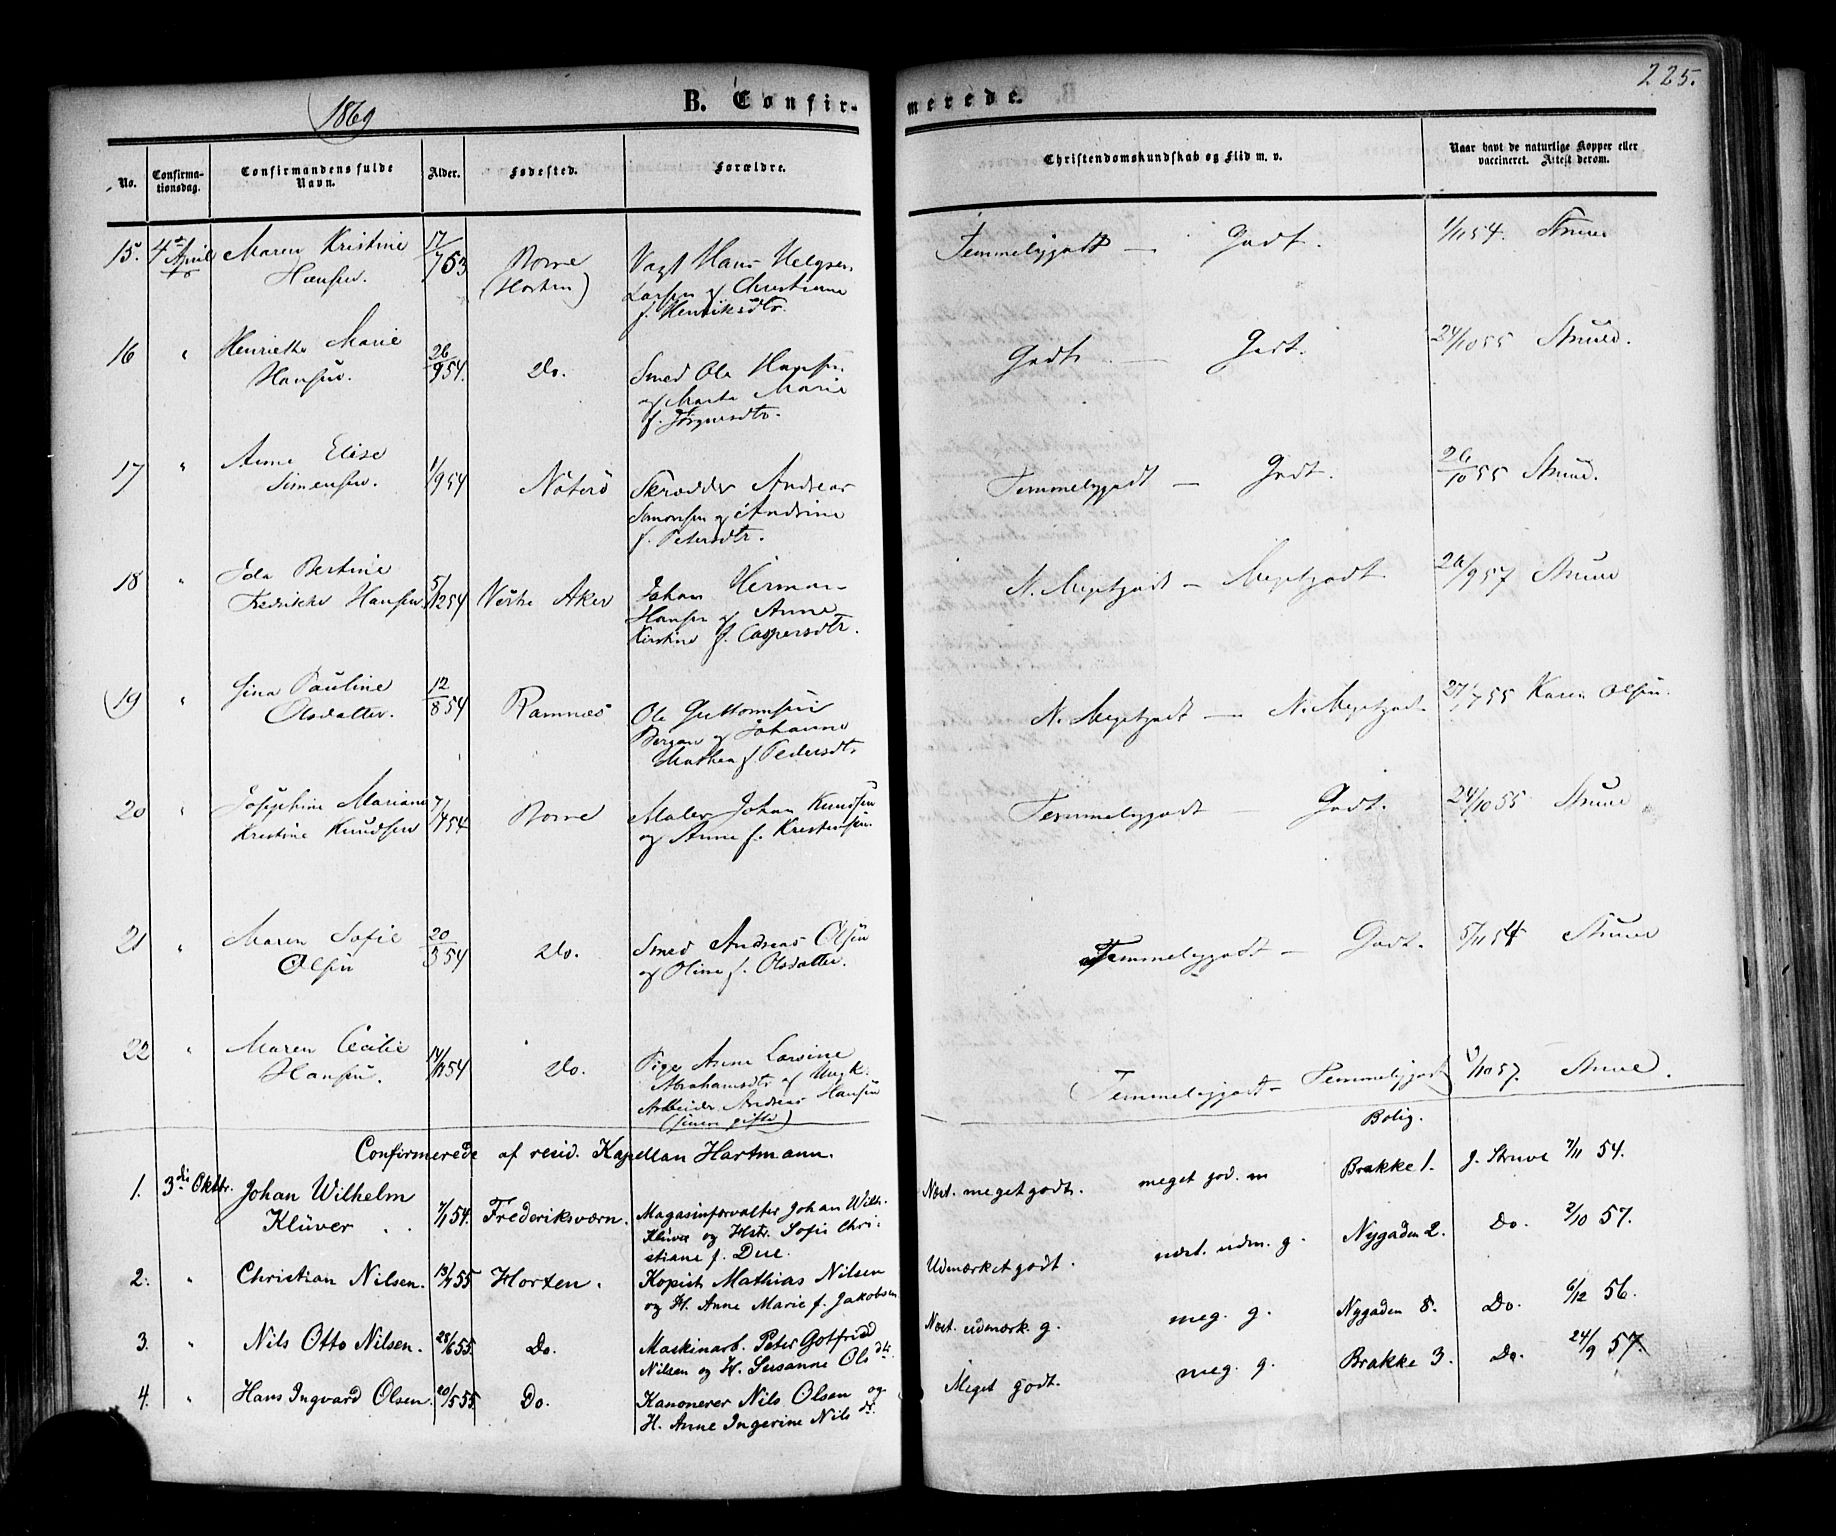 1869
B. Confir-
merede.
225.
No.
Confirma-
tionsdag.
Confirmandens fulde
Navn.
Alder.
Fødested.
Forældre.
Christendomskundskab og Flid m. v.
Naar havt de naturlige Kopper eller
vaccineret. Attest derom.
15. 4de April Maren Kristine 17/7 53 Borre Vagt Hans Helgsen Temmeliggodt — Godt. 1/11 54. Struve
Hansen (Horten) Larsen og Christiane
f. Henriksdtr.
16 " Henriette Marie 26/9 54. Do. Smed Ole Hansen Godt — Godt. 24/10 55 Struve.
Hansen. og Marte Marie
f. Jörgensdtr.
17 " Anne Elise 1/9 54 Nöterö Skrædder Andreas Temmeliggodt — Godt. 26/10 55 Struve.
Simensen. Simonsen og Andrine
f. Petersdtr.
18 " Ida Bertine 5/12 54 Vestre Aker Johan Herman N. Megetgodt — Megetgodt 26/9 57 Struve
Fredrikke Hansen Hansen og Anne
Kirstine f. Caspersdtr.
19 " Gina Pauline 12/8 54 Ramnæs Ole Guttormsen N. Megetgodt — N. Megetgodt 27/7 55 Karen Olsen.
Olsdatter. Bergan og Johanne
Mathea f. Pedersdtr.
20 " Josephine Mariane 7/7 54 Borre Maler Johan Knudsen Temmeliggodt — Godt. 24/10 55 Struve
Kristine Knudsen og Anne f. Kristensen.
21 " Maren Sofie 20/3 54 Do. Smed Andreas Olsen Temmeliggodt — Godt. 5/11 54 Struve
Olsen og Oline f. Olsdatter.
22 " Maren Cecilie 14/11 54 Do. Pige Anne Larsine Temmeliggodt — Temmeliggodt /10 57. Struve.
Hansen. Abrahamsdtr og Ungk.
Arbeider Andreas Hansen
(siden gifte)
Bolig.
Confirmerede af resid. Kapellan Hartmann.
1. 3die Oktbr. Johan Wilhelm 7/1 54. Frederiksværn. Magasinforvalter Johan Wilh. Næst. meget godt. meget god. m Brakke 1. J. Struve 7/11 54.
Klüver Klüver og Hstr. Sofie Chri-
stiane f. Due.
2. " Christian Nilsen. 13/7 55 Horten. Kopist Mathias Nilsen Udmærket godt. næst. udm. g. Nygaden 2. Do. 2/10 57.
og H. Anne Marie f. Jakobsen
3. " Nils Otto Nilsen. 28/6 55. Do. Maskinarb. Peter Gotfried Næst. udmærk. g. meg. g. Nygaden 8. Do. 6/12 56.
Nilsen og H. Susanne Olsdtr.
4. " Hans Ingvard Olsen. 20/5 55. Do. Kanonerer Nils Olsen og Meget godt. meg. g. Brakke 3. Do. 24/9 57.
H. Anne Ingerine Nilsdt.